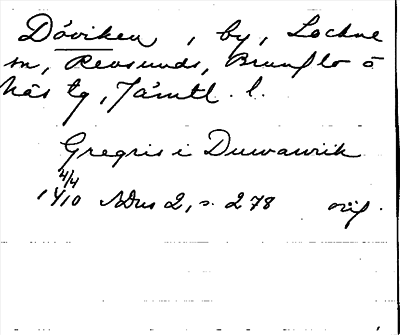 Döviken, by, Lockne
sn, Revsunds, Brunflo o
Näs tg, Jämtl. l.
Gregris i Duwawik
4/4
1410 NDus 2, s. 278 orig.